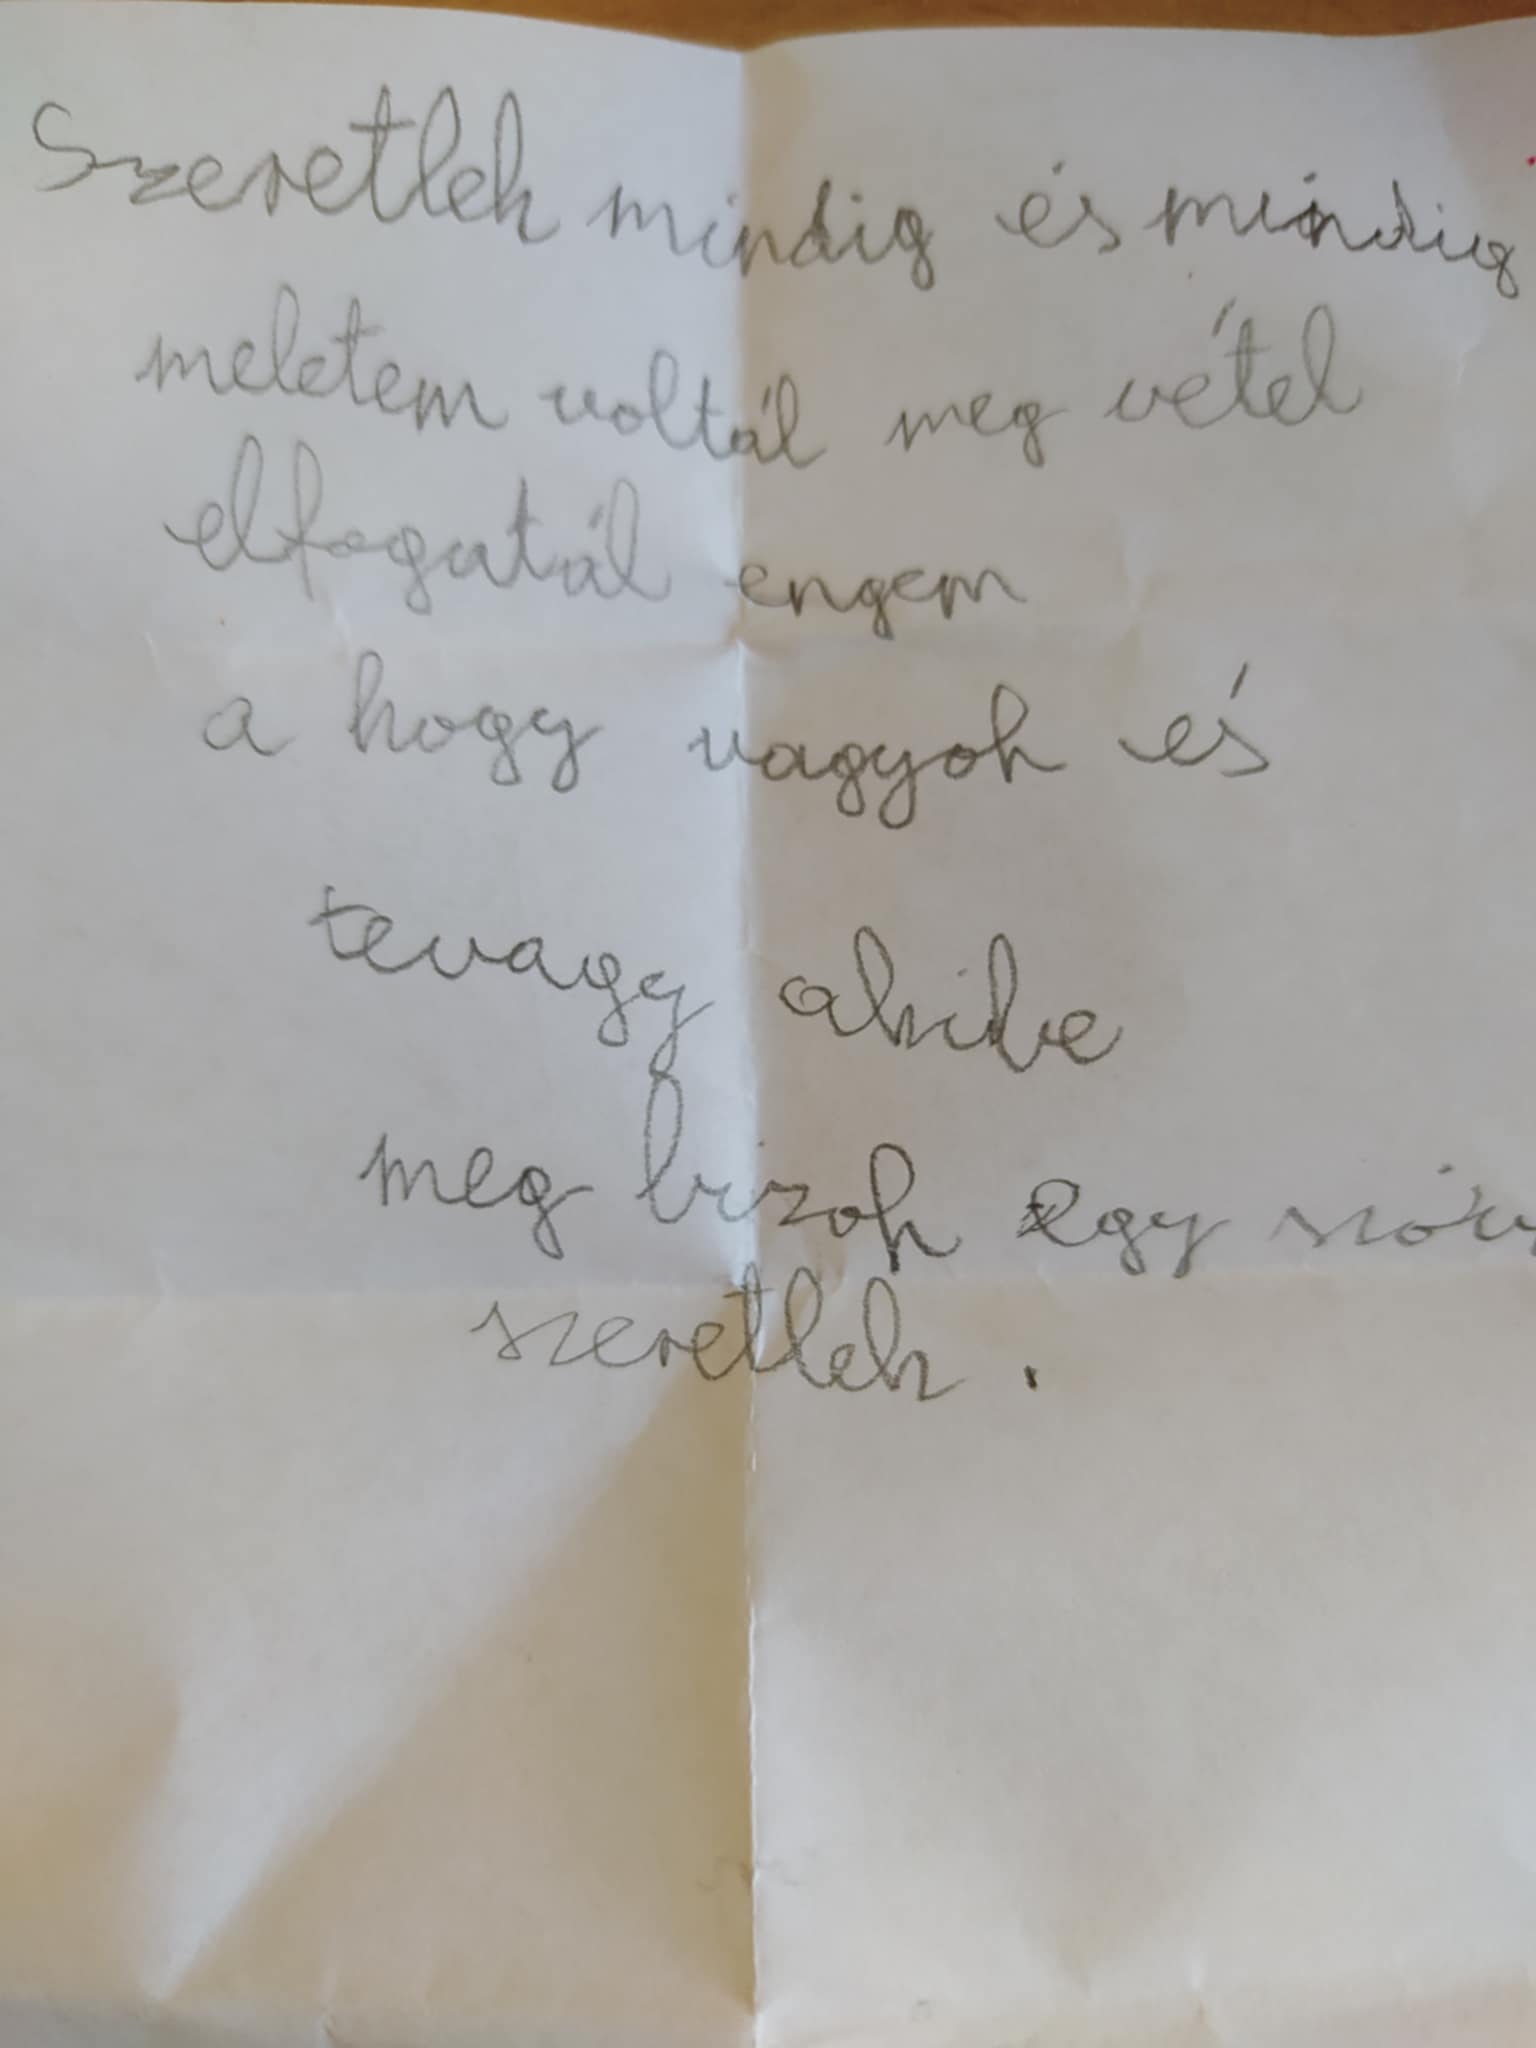 Szeretlek mindig és mindig
meletem voltál meg vétel
elfogatál engem
a hogy vagyok és
tevagy akibe
meg bizok egy
szeretlek.